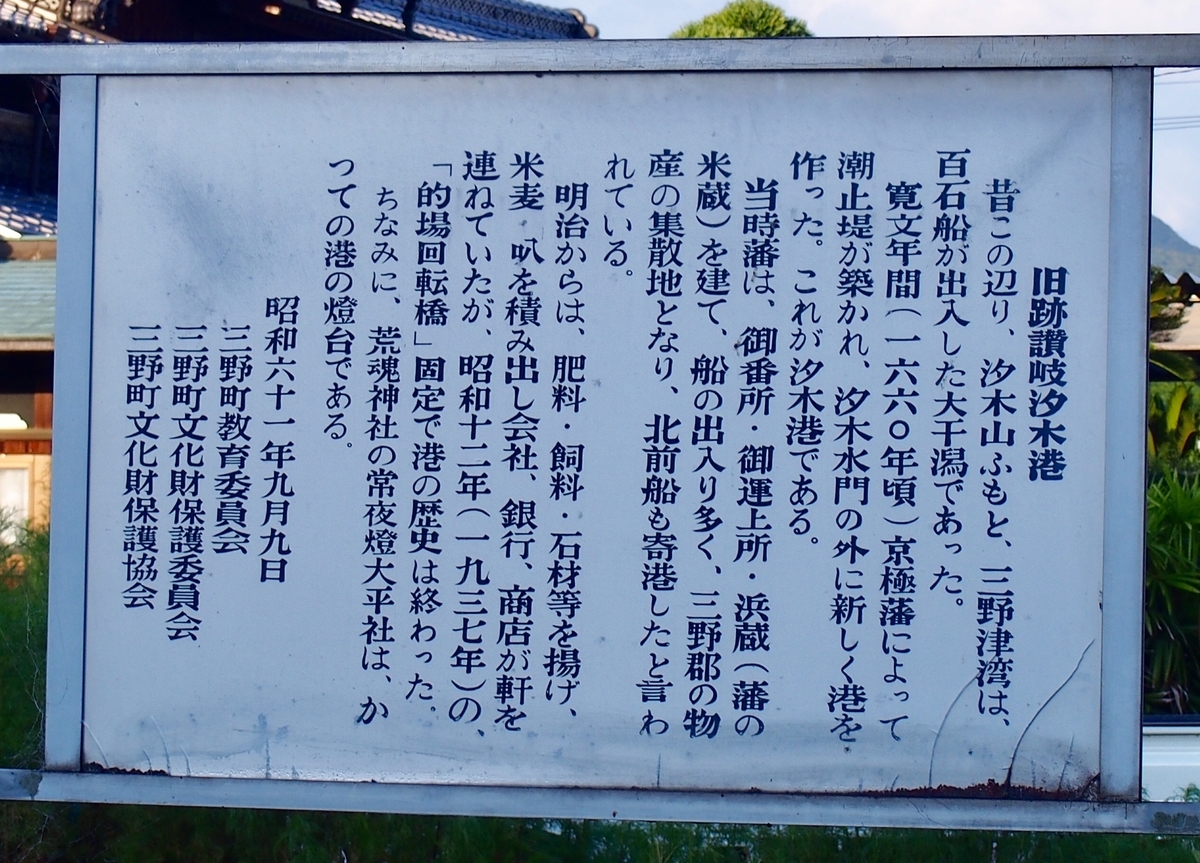 旧跡讃岐汐木港
昔この辺り、汐木山ふもと、三野津湾は、
百石船が出入した大干潟であった。
寛文年間（一六六〇年頃）京極藩によって
潮止堤が築かれ、汐木水門の外に新しく港を
作った。これが汐木港である。
当時藩は、御番所・御運上所・浜蔵（藩の
米蔵）を建て、船の出入り多く、三野郡の物
産の集散地となり、北前船も寄港したと言わ
れている。
明治からは、肥料・飼料・石材等を揚げ、
米麦 叺を積み出し会社、銀行、商店が軒を
連ねていたが、昭和十二年（一九三七年）の、
「的場回転橋」固定で港の歴史は終わった。
ちなみに、荒魂神社の常夜燈大平社は、か
つての港の燈台である。
昭和六十一年九月九日
三野町教育委員会
三野町文化財保護委員会
三野町文化財保護協会